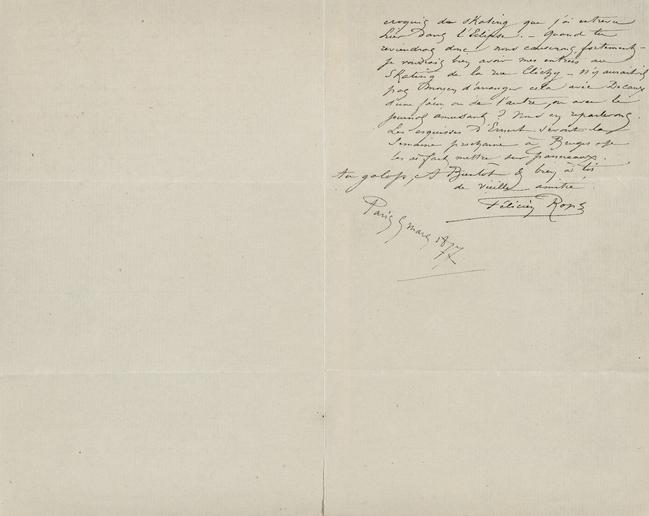 croquis de skating que j'ai entrevu
hier dans l'Eclipse. – Quand tu
reviendras donc nous causerons fortement –
je voudrais bien avoir mes entrées au
Skating de la rue Clichy – N'y aurait-il
pas moyen d'arranger cela avec Decaux
d'une façon ou de l'autre, ou avec le
journal amusant ? Nous en reparlerons.
Les esquisses d'Ernest seront la
Semaine prochaine à Bruges
les ai fait mettre sur panneaux.
Au galop, A Bientôt & bien à toi
de vieille amitié
Félicien Rops
Paris 9 mars 1877